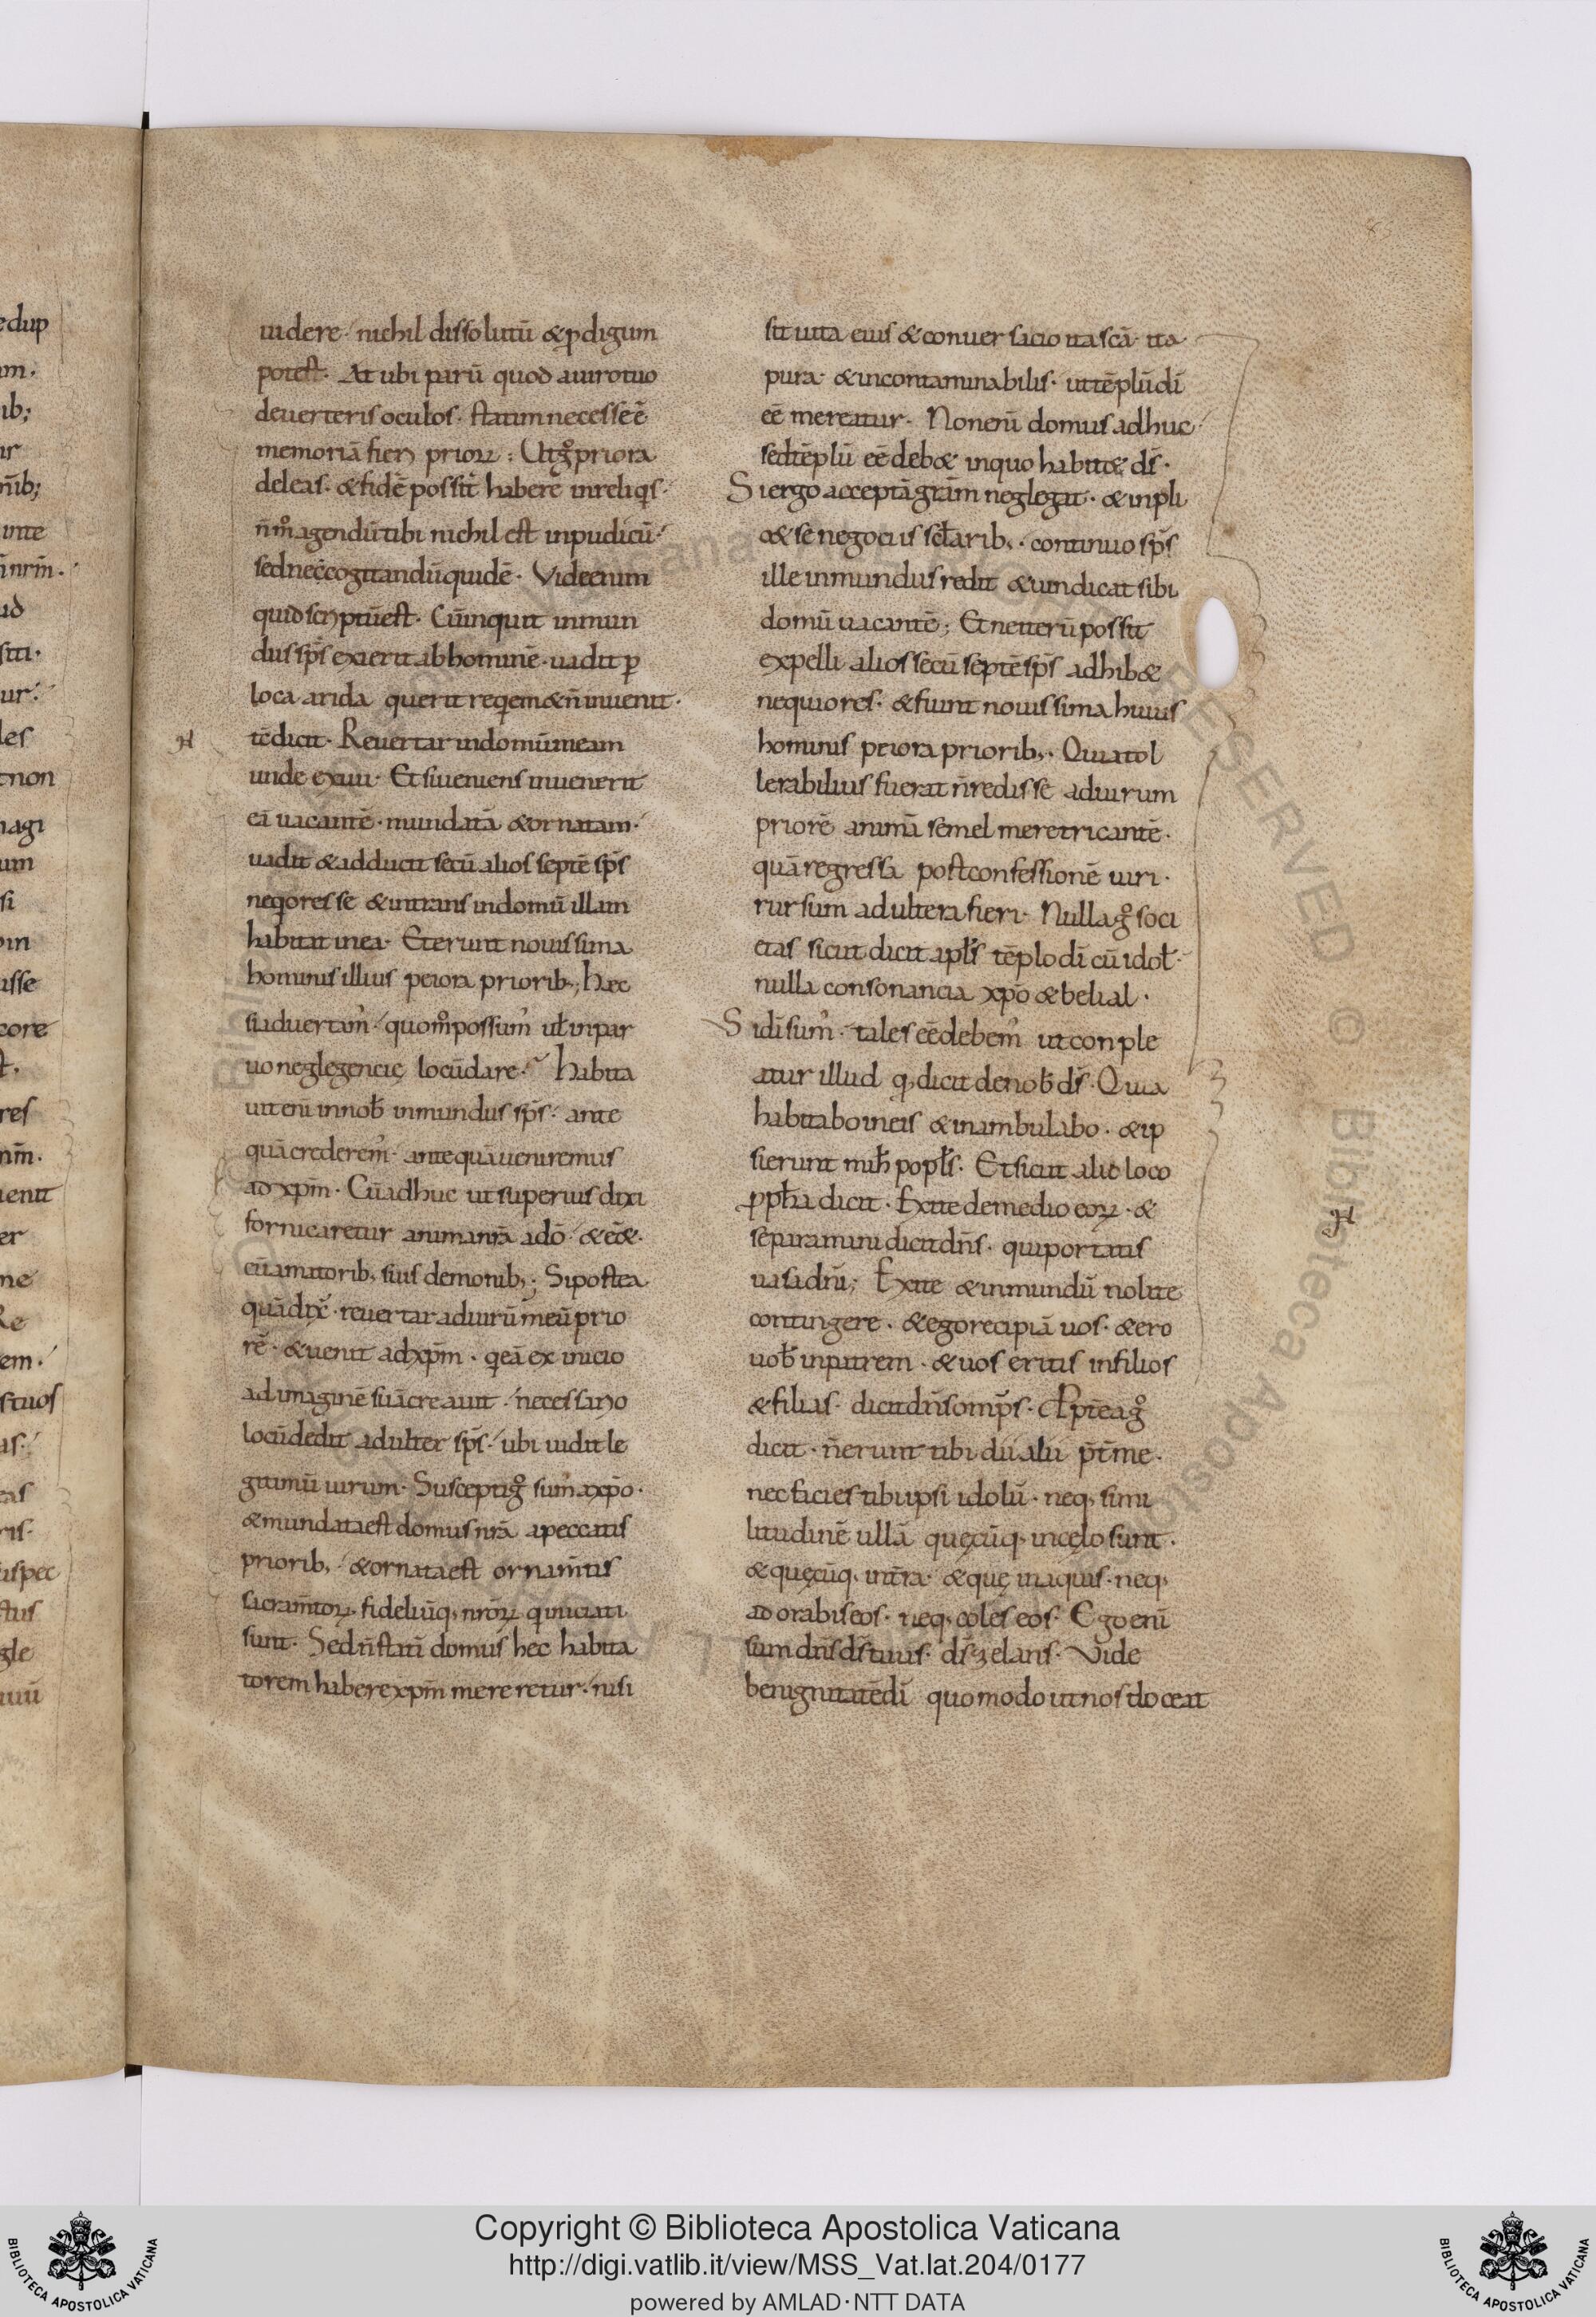 uidere · nichil dissolutū & ꝓdigum
potest · At ubi parū quod a uiro tuo
deuerteris oculos · statim necesse ē
memoriā fieri prioꝝ : Ut gͦ priora
deleas · & fidē possit habere in reliqis ·
n̄ m̊ agendū tibi nichil est inpudicū ·
sed nec cogitandū quidē · Vide enim
quid scriptū est · Cū inquit inmun
dus sps̄ exierit ab homine · uadit ꝑ
loca arida querit reqem & n̄ inuenit ·
tē dicit · Reuertar in domū meam
unde exiui · Et si ueniens inuenerit
eā uacantē · mundatā & ornatam ·
uadit & adducit secū alios septē sps̄
neqores se & intrans in domū illam
habitat in ea · Et erunt nouissima
hominis illius peiora priorib; hec
si aduertam' · quom̊ possum' uƚ in par
uo neglegencię locū dare · Habita
uit eni in nob̄ inmundus sps̄ · ante
quā crederem' · ante quā ueniremus
ad xp̄m · Cū adhuc ut superius dixi
fornicaretur anima nr̄a a dō · & eēt
cū amatorib; suis demonib; · Si postea
quā dix̄ · reuertar ad uirū meū prio
rē · & uenit ad xp̄m · q eā ex inicio
ad imaginē suā creauit · necessario
locū dedit adulter sps̄ · ubi uidit le
gitimū uirum · Suscepti gͦ sum' a xp̄o ·
& mundata est domus nr̄a a peccatis
priorib; · & ornata est ornam̄tis
sacram̄toꝝ fideliūq; nr̄oꝝ q iniciati
sunt · Sed n̄ stati domus hec habita
torem habere xp̄m mereretur · nisi
sit uita eius & conuersacio ita scā · ita
pura · & incontaminabilis · ut tēplū dī
eē mereatur · Non enī domus adhuc
sed tēplū eē debet in quo habitet ds̄ ·
Si ergo acceptā gr̄am neglegat · & inpli
cet se negociis secƚarib; · continuo sps̄
ille inmundus redit & uindicat sibi
domū uacantē ; Et ne iterū possit
expelli alios secū septē sps̄ adhibet
nequiores · & fiunt nouissima huius
hominis peiora priorib; · Quia tol
lerabilius fuerat n̄ redisse ad uirum
priorē animā semel meretricantē ·
quā regressa post confessionē uiri ·
rursum adultera fieri · Nulla gͦ soci
etas sicut dicit apƚs tēplo dī cū idoƚ ·
nulla consonancia xp̄o & belial ·
Si dī sum' · tales eē debem' ut conple
atur illud q, dicit de nob̄ ds̄ · Quia
habitabo in eis & inambulabo · & ip
si erunt mih̄ popƚs · Et sicut alio loco
ꝓph̄a dicit · Exite de medio eoꝝ · &
separamini dicit dn̄s · qui portatis
uasa dn̄i ; Exite & inmundū nolite
contingere · & ego recipiā uos · & ero
uob̄ in patrem · & uos eritis in filios
& filias · dicit dn̄s omp̄s · Apteā gͦ
dicit · n̄ erunt tibi dii alii p̄t me ·
nec facies tibi ipsi idolū · neq; simi
litudinē ullā quęcūq; in cęlo sunt ·
& quęcūq; in tr̄a · & quę in aquis · neq;
adorabis eos · neq; coles eos · Ego enī
sum dn̄s ds̄ tuus · ds̄ zelans · Vide
benignitatē dī quomodo ut nos doceat
Copyright © Biblioteca Apostolica Vaticana
http://digi.vatlib.it/view/MSS_Vat.lat.204/0177
powered by AMLAD·NTT DATA
BIBLIOTECA APOSTOLICA VATICANA
BIBLIOTECA APOSTOLICA VATICANA